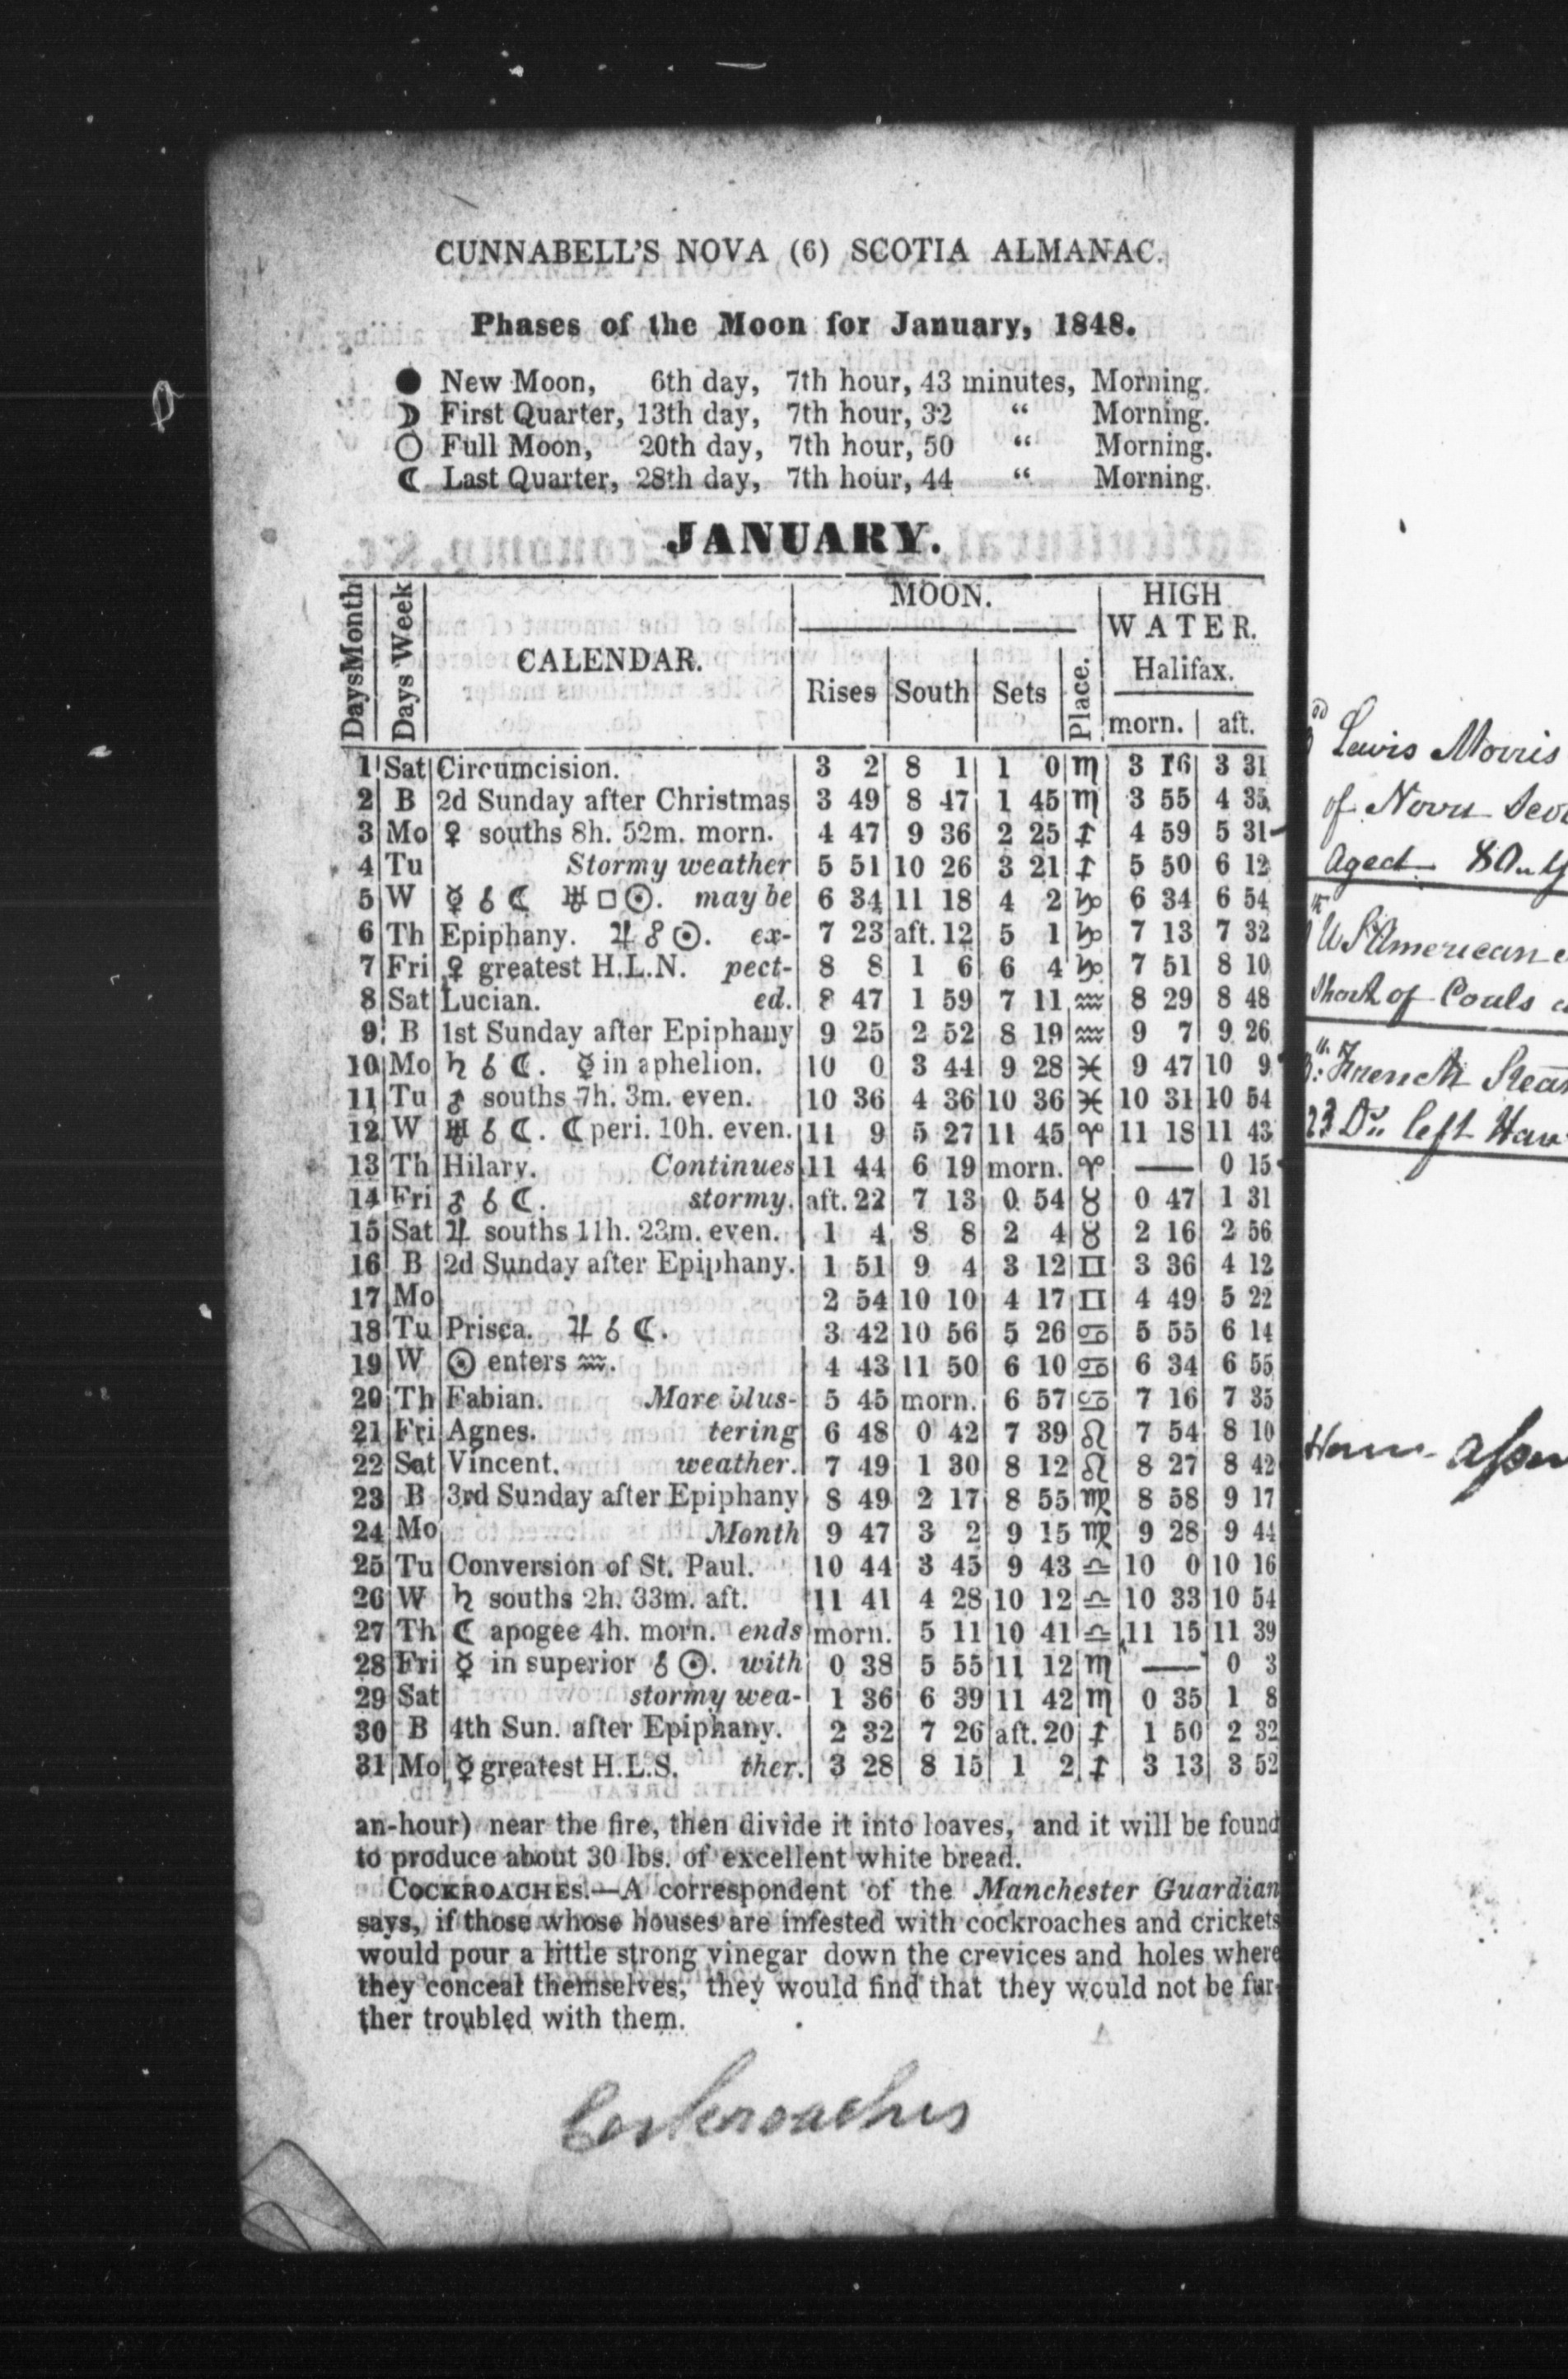 CUNNABELL'S NOVA (6) SCOTIA ALMANAC.
Phases of the Moon for January, 1848.
● New Moon, 6th day, 7th hour, 43 minutes, Morning.
☽ First Quarter, 13th day, 7th hour, 32 “ Morning.
○ Full Moon, 20th day, 7th hour, 50 “ Morning.
☾ Last Quarter, 28th day, 7th hour, 44 “ Morning.
JANUARY.
DaysMonth Days Week CALENDAR. MOON. HIGH WATER.
Rises South Sets Place. Halifax.
morn. aft.
1 Sat Circumcision. 3 2 8 1 1 0 ♏ 3 16 3 31
2 B 2d Sunday after Christmas 3 49 8 47 1 45 ♏ 3 55 4 35
3 Mo ♀ souths 8h. 52m. morn. 4 47 9 36 2 25 ♐ 4 59 5 31
4 Tu Stormy weather 5 51 10 26 3 21 ♐ 5 50 6 12
5 W ☿ ☌ ☾ ♅ □ ☉. may be 6 34 11 18 4 2 ♑ 6 34 6 54
6 Th Epiphany. ♃ ☍ ☉. ex- 7 23 aft. 12 5 1 ♑ 7 13 7 32
7 Fri ♀ greatest H.L.N. pect- 8 8 1 6 6 4 ♑ 7 51 8 10
8 Sat Lucian. ed. 8 47 1 59 7 11 ♒ 8 29 8 48
9 B 1st Sunday after Epiphany 9 25 2 52 8 19 ♒ 9 7 9 26
10 Mo ♄ ☌ ☾. ☿ in aphelion. 10 0 3 44 9 28 ♓ 9 47 10 9
11 Tu ♂ souths 7h. 3m. even. 10 36 4 36 10 36 ♓ 10 31 10 54
12 W ♅ ☌ ☾. ☾ peri. 10h. even. 11 9 5 27 11 45 ♈ 11 18 11 43
13 Th Hilary. Continues 11 44 6 19 morn. ♈ — 0 15
14 Fri ♂ ☌ ☾. stormy. aft. 22 7 13 0 54 ♉ 0 47 1 31
15 Sat ♃ souths 11h. 23m. even. 1 4 8 8 2 4 ♉ 2 16 2 56
16 B 2d Sunday after Epiphany. 1 51 9 4 3 12 ♊ 3 36 4 12
17 Mo 2 54 10 10 4 17 ♊ 4 49 5 22
18 Tu Prisca. ♃ ☌ ☾. 3 42 10 56 5 26 ♋ 5 55 6 14
19 W ☉ enters ♒. 4 43 11 50 6 10 ♋ 6 34 6 55
20 Th Fabian. More blus- 5 45 morn. 6 57 ♋ 7 16 7 35
21 Fri Agnes. tering 6 48 0 42 7 39 ♌ 7 54 8 10
22 Sat Vincent. weather. 7 49 1 30 8 12 ♌ 8 27 8 42
23 B 3rd Sunday after Epiphany 8 49 2 17 8 55 ♍ 8 58 9 17
24 Mo Month 9 47 3 2 9 15 ♍ 9 28 9 44
25 Tu Conversion of St. Paul. 10 44 3 45 9 43 ♎ 10 0 10 16
26 W ♄ souths 2h. 33m. aft. 11 41 4 28 10 12 ♎ 10 33 10 54
27 Th ☾ apogee 4h. morn. ends morn. 5 11 10 41 ♎ 11 15 11 39
28 Fri ☿ in superior ☌ ☉. with 0 38 5 55 11 12 ♏ — 0 3
29 Sat stormy wea- 1 36 6 39 11 42 ♏ 0 35 1 8
30 B 4th Sun. after Epiphany. 2 32 7 26 aft. 20 ♐ 1 50 2 32
31 Mo ☿ greatest H.L.S. ther. 3 28 8 15 1 2 ♐ 3 13 3 52
an-hour) near the fire, then divide it into loaves, and it will be found
to produce about 30 lbs. of excellent white bread.
COCKROACHES.—A correspondent of the Manchester Guardian
says, if those whose houses are infested with cockroaches and crickets
would pour a little strong vinegar down the crevices and holes where
they conceal themselves, they would find that they would not be fur-
ther troubled with them.
Cockroaches
Lewis Morris
of Nova
aged 80
US American
Short of Coals
French
23 Do left